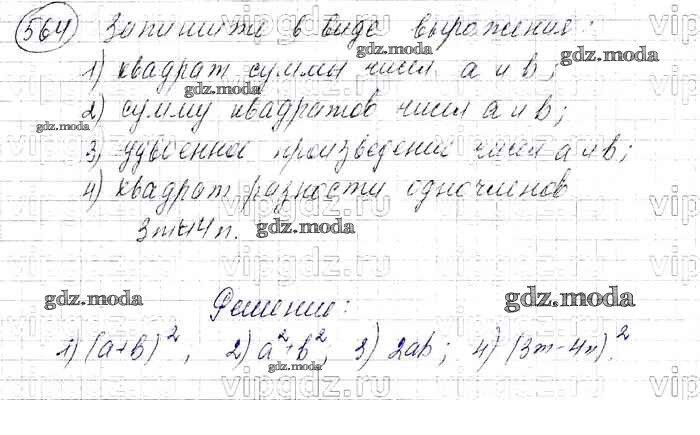 564 Запишите в виде выражения:
1) квадрат суммы чисел a и b;
2) сумму квадратов чисел a и b;
3) удвоенное произведение чисел a и b;
4) квадрат разности одночленов
3m и 4n.
Решение:
1) (a+b)², 2) a²+b², 3) 2ab; 4) (3m-4n)².
gdz.moda
gdz.moda
gdz.moda
gdz.moda
gdz.moda
gdz.moda
gdz.moda
vipgdz.ru